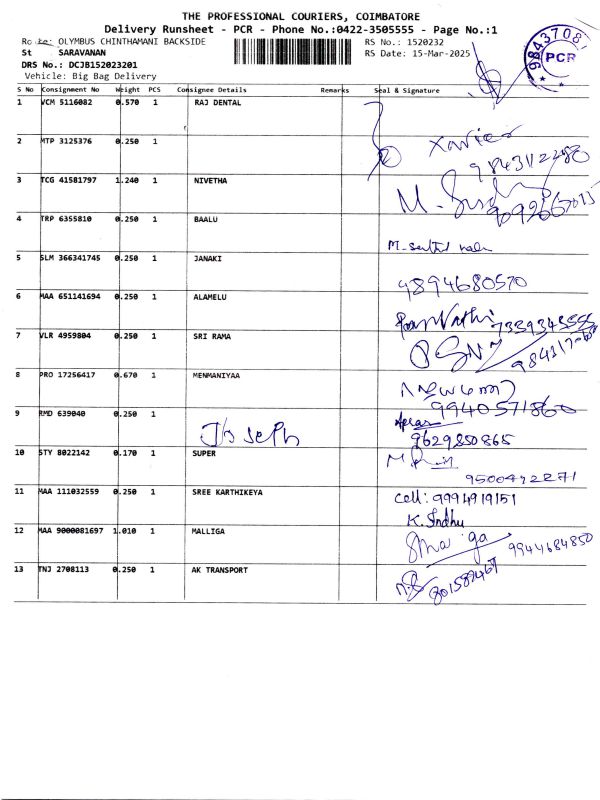 THE PROFESSIONAL COURIERS, COIMBATORE
Delivery Runsheet - PCR - Phone No.:0422-3505555 - Page No.:1
Route: OLYMBUS CHINTHAMANI BACKSIDE RS No.: 1520232
St SARAVANAN RS Date: 15-Mar-2025
DRS No.: DCJB152023201
Vehicle: Big Bag Delivery
PCR
S No Consignment No Weight PCS Consignee Details Remarks Seal & Signature
1 VCM 5116082 0.570 1 RAJ DENTAL
2 MTP 3125376 0.250 1 Xavier
9843112280
3 TCG 41581797 1.240 1 NIVETHA
4 TRP 6355810 0.250 1 BAALU
5 SLM 366341745 0.250 1 JANAKI
4894680570
6 MAA 651141694 0.250 1 ALAMELU
7339343555
7 VLR 4959804 0.250 1 SRI RAMA
8 PRO 17256417 0.670 1 MENMANIYAA
9940571860
9 RMD 639040 0.250 1 Joseph
9629850865
10 STY 8022142 0.170 1 SUPER
9500422271
11 MAA 111032559 0.250 1 SREE KARTHIKEYA cell: 9994919151
K. Indhu
12 MAA 9000081697 1.010 1 MALLIGA
9944684850
13 TNJ 2708113 0.250 1 AK TRANSPORT